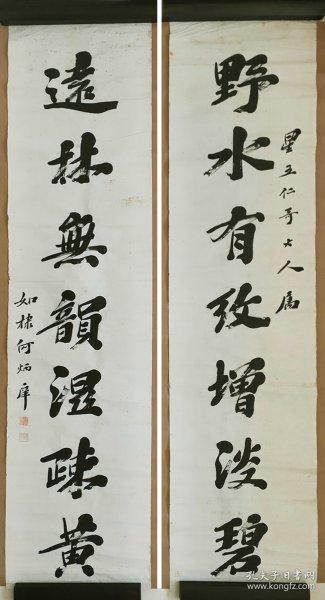 星五仁哥大人属
野水有致增淡碧
遠林無韻混疎黄
如棣何炳
孔夫子旧书网